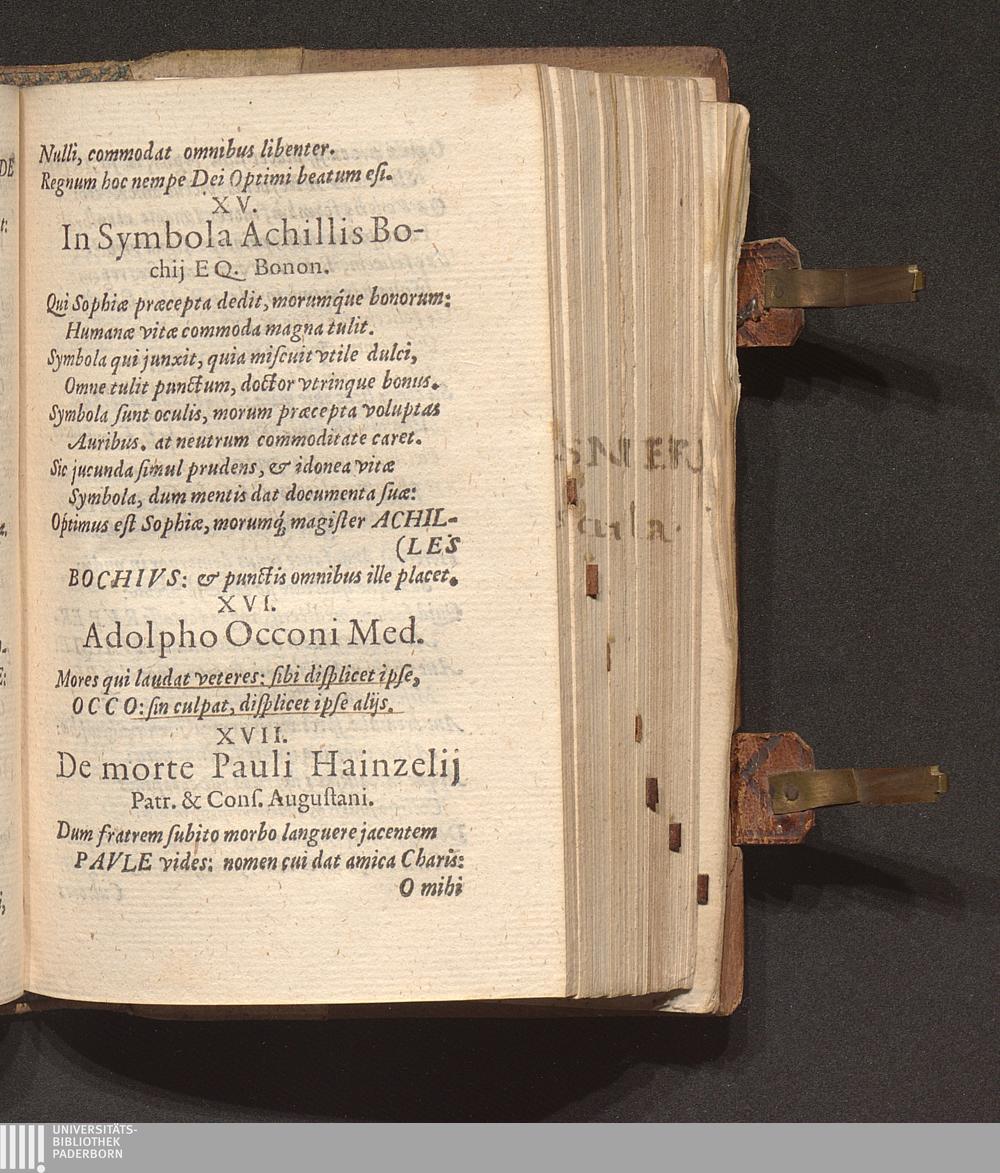 Nulli, commodat omnibus libenter.
Regnum hoc nempe Dei Optimi beatum eſt.
XV.
In Symbola Achillis Bo-
chij EQ. Bonon.
Qui Sophiæ præcepta dedit, morumq́ue bonorum:
Humanæ vitæ commoda magna tulit.
Symbola qui junxit, quia miſcuit vtile dulci,
Omne tulit punctum, doctor vtrinque bonus.
Symbola ſunt oculis, morum præcepta voluptas
Auribus. at neutrum commoditate caret.
Sic jucunda ſimul prudens, & idonea vitæ
Symbola, dum mentis dat documenta ſuæ:
Optimus eſt Sophiæ, morumq́; magiſter ACHIL-
(LES
BOCHIVS: & punctis omnibus ille placet.
XVI.
Adolpho Occoni Med.
Mores qui laudat veteres: ſibi diſplicet ipſe,
OCCO: ſin culpat, diſplicet ipſe alijs.
XVII.
De morte Pauli Hainzelij
Patr. & Conſ. Auguſtani.
Dum fratrem ſubito morbo languere jacentem
PAVLE vides: nomen cui dat amica Charis:
O mihi
DE
t:
UNIVERSITÄTS-
BIBLIOTHEK
PADERBORN